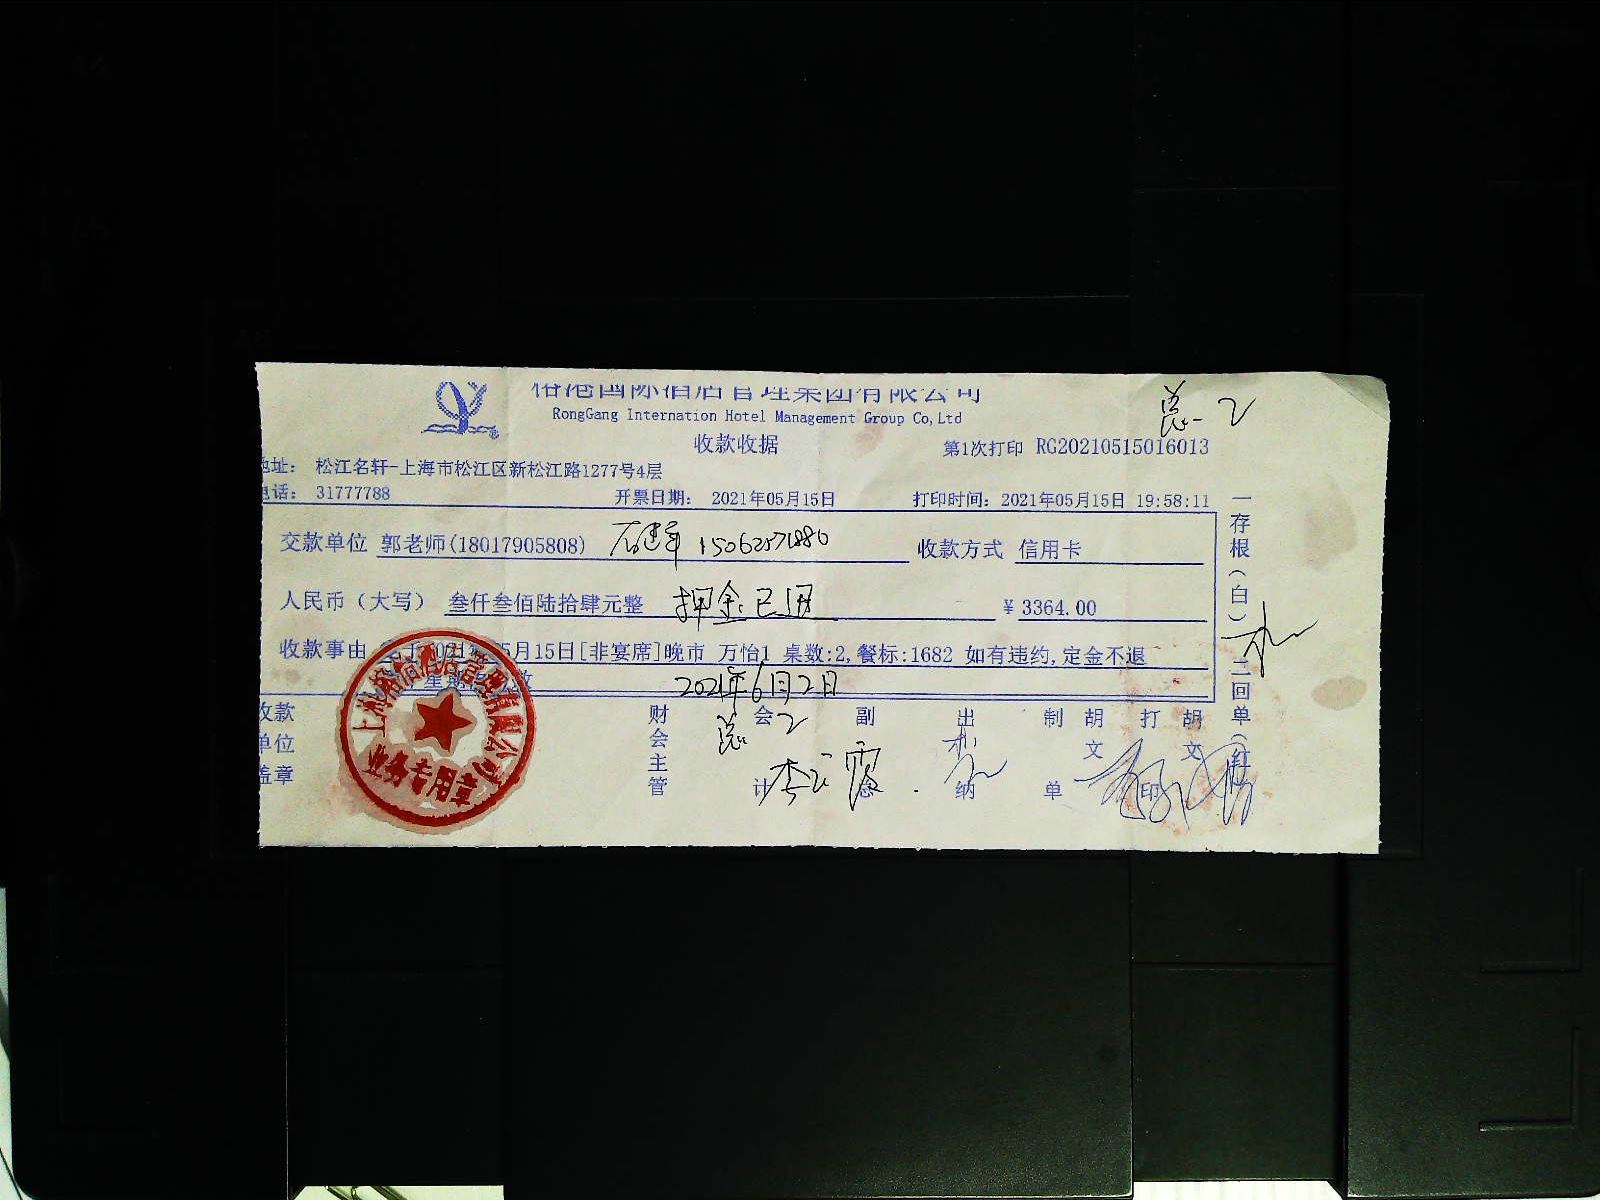 榕港国际酒店管理集团有限公司
RongGang Internation Hotel Management Group Co,Ltd
收款收据
第1次打印 RG20210515016013
地址: 松江名轩-上海市松江区新松江路1277号4层
电话: 31777788 开票日期: 2021年05月15日 打印时间: 2021年05月15日 19:58:11
交款单位 郭老师(18017905808) 收款方式 信用卡
人民币（大写） 叁仟叁佰陆拾肆元整 押金已用 ¥3364.00
收款事由 2021年05月15日[非宴席]晚市 万怡1 桌数:2,餐标:1682 如有违约,定金不退
2021年6月2日
收款单位盖章
财会主管 会计 副总 出纳 制单 胡文 打印 胡文
一存根(白) 二回单(红)
业务专用章